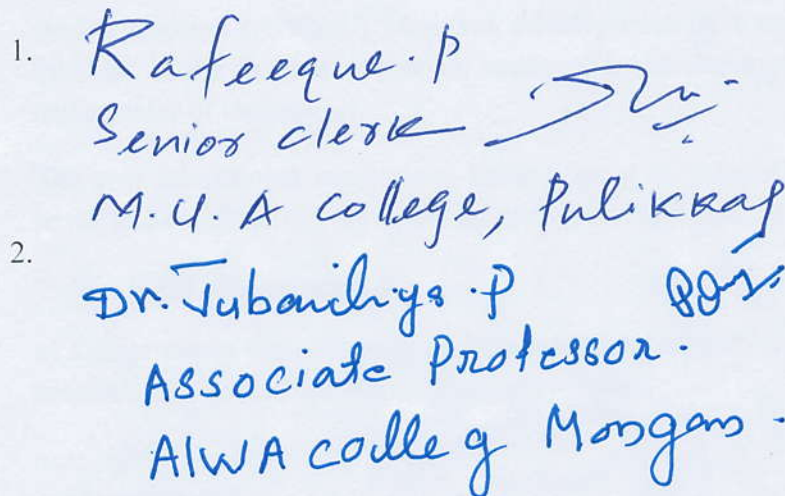 1. Rafeeque. P
Senior clerk
M.U.A college, Pulikkal
2.
Dr. P
Associate Professor.
AIWA colleg Mongam.